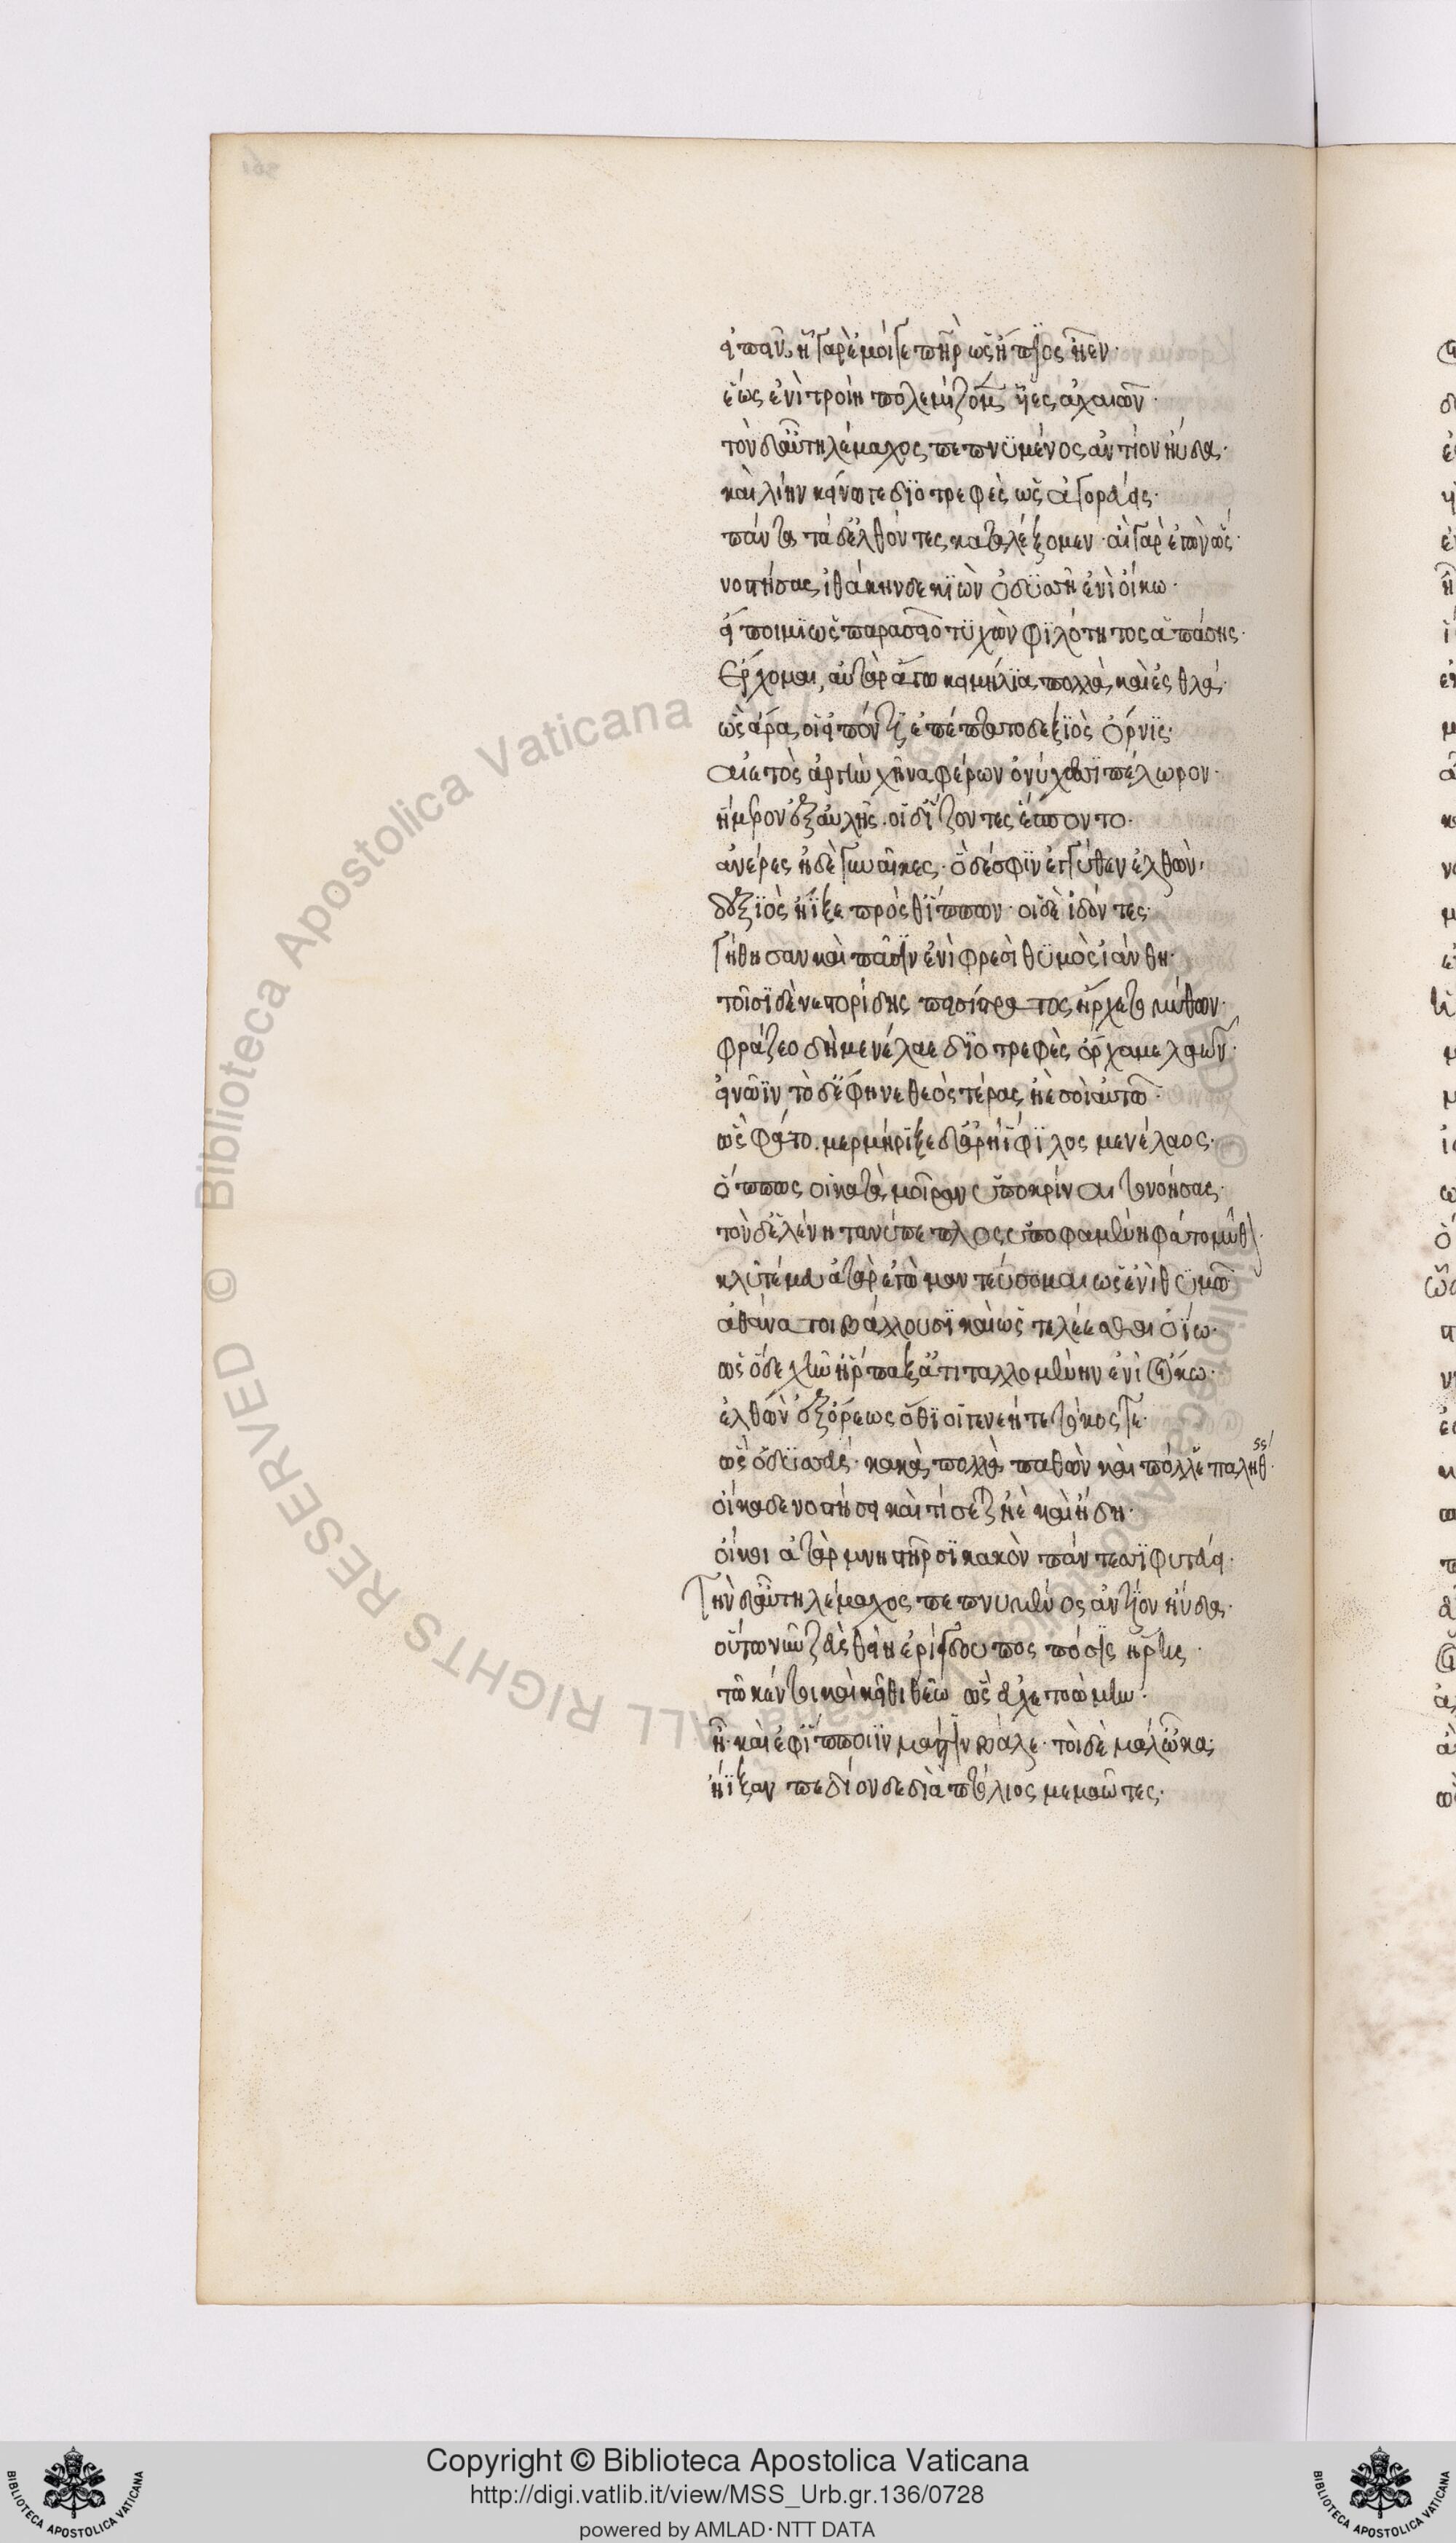 εἰπεῖν· ἦ γὰρ ἐμοί γε πατὴρ ὣς ἤπιος ἦεν·
ἕως ἐνὶ τροίη πολεμίζομεν υἷες ἀχαιῶν·
τὸν δ' αὖ τηλέμαχος πεπνυμένος ἀντίον ηὔδα·
καὶ λίην κείνω γε διοτρεφὲς ὡς ἀγορεύεις·
πάντα τάδ' ἐλθόντες καταλέξομεν· αἲ γὰρ ἐγὼν ὣς·
νοστήσας ἰθάκηνδε κιὼν ὀδυσῆ' ἐνὶ οἴκω·
εἴποιμι ὡς παρὰ σεῖο τυχὼν φιλότητος ἁπάσης·
ἔρχομαι, αὐτὰρ ἄγω κειμήλια πολλὰ καὶ ἐσθλά·
ὣς ἄρα οἱ εἰπόντι ἐπέπτατο δεξιὸς ὄρνις·
αἰετὸς ἀργὴν χῆνα φέρων ὀνύχεσσι πέλωρον·
ἥμερον ἐξ αὐλῆς· οἱ δ' ἰύζοντες ἕποντο·
ἀνέρες ἠδὲ γυναῖκες· ὁ δέ σφιν ἐγγύθεν ἐλθὼν·
δεξιὸς ἤϊξε πρόσθ' ἵππων· οἱ δὲ ἰδόντες·
γήθησαν καὶ πᾶσιν ἐνὶ φρεσὶ θυμὸς ἰάνθη·
τοῖσι δὲ νεστορίδης πεισίστρατος ἤρχετο μύθων·
φράζεο δὴ μενέλαε διοτρεφὲς ὄρχαμε λαῶν·
εἰ νῶϊν τόδ' ἔφηνε θεὸς τέρας ἠὲ σοὶ αὐτῶ·
ὣς φάτο· μερμήριξε δ' ἀρηΐφιλος μενέλαος·
ὅππως οἱ κατὰ μοῖραν ὑποκρίναιτο νοήσας·
τὸν δ' ἑλένη τανύπεπλος ὑποφθαμένη φάτο μῦθον·
κλῦτέ μευ αὐτὰρ ἐγὼ μαντεύσομαι ὡς ἐνὶ θυμῶ
ἀθάνατοι βάλλουσι καὶ ὡς τελέεσθαι ὀΐω·
ὡς ὅδε χῆν' ἥρπαξ' ἀτιταλλομένην ἐνὶ οἴκω·
ἐλθὼν ἐξ ὄρεος ὅθι οἱ γενεή τε τόκος τε·
ὣς ὀδυσεύς· κακὰ πολλὰ παθὼν καὶ πόλλ' ἐπαληθείς·
οἴκαδε νοστήσει καὶ τίσεται ἠὲ καὶ ἤδη·
οἴκοι ἀτὰρ μνηστῆρσι κακὸν πάντεσσι φυτεύει·
Τὴν δ' αὖ τηλέμαχος πεπνυμένος ἀντίον ηὔδα·
οὕτω νῦν ζεὺς θείη ἐρίγδουπος πόσις ἥρης·
τῶ κέν τοι καὶ κεῖθι θεῷ ὣς εὐχετοώμην·
ἦ· καὶ ἐφ' ἵπποιιν μάστιν βάλε· τοὶ δὲ μάλ' ὦκα·
ἤϊξαν πεδίονδε διὰ πτόλιος μεμαῶτες·